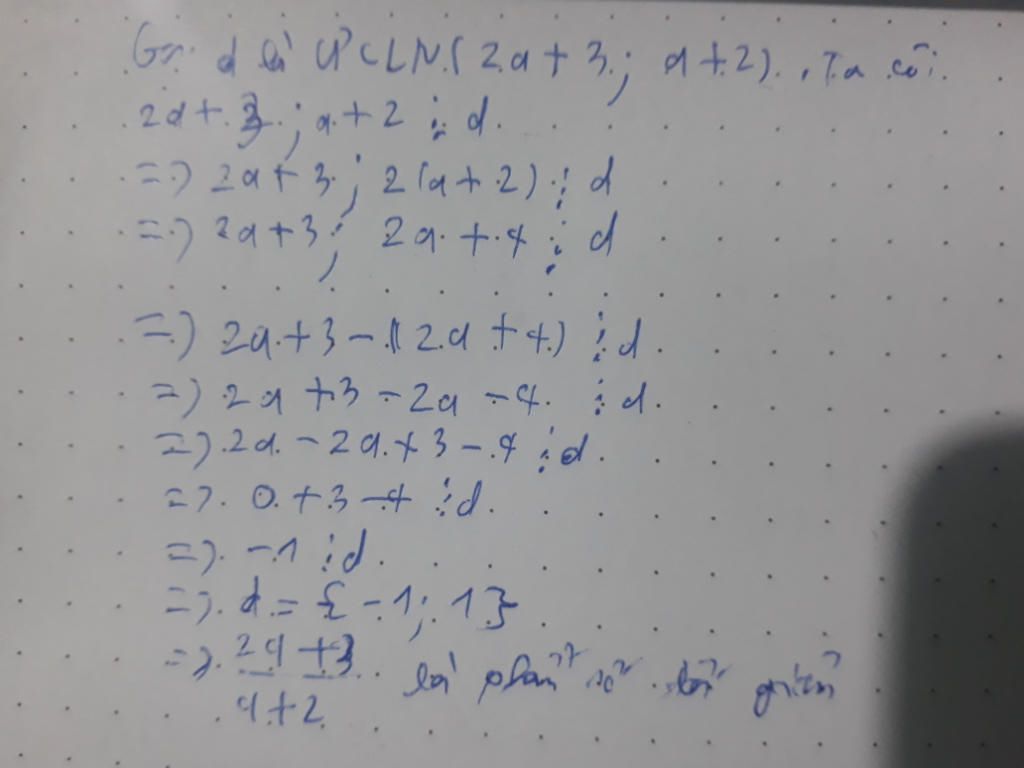 Gx: d là ƯCLN(2a+3; a+2). Ta có:
2a+3; a+2 ⋮ d.
=> 2a+3; 2(a+2) ⋮ d
=> 2a+3; 2a+4 ⋮ d
=> 2a+3-(2a+4) ⋮ d.
=> 2a+3-2a-4 ⋮ d.
=> 2a-2a+3-4 ⋮ d.
=> 0+3-4 ⋮ d.
=> -1 ⋮ d.
=> d = {-1; 1}
=> 2a+3/a+2 là phân số tối giản